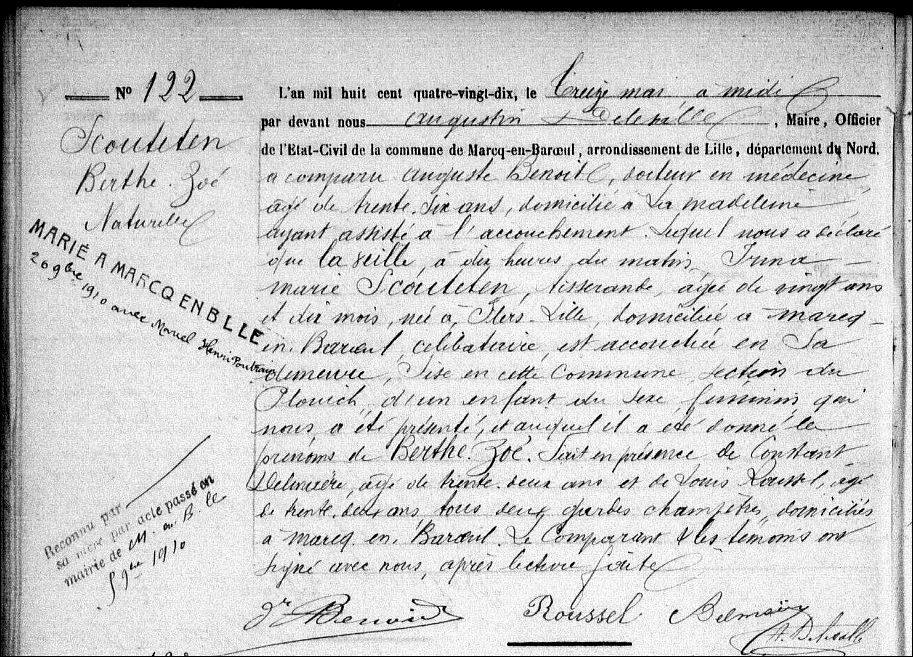 N° 122
Scouteten
Berthe Zoé
Naturelle
MARIÉ A MARCQ EN B LLE
20 9bre 1910 avec Marcel Henri
Reconnu par
sa mère par acte passé en
mairie de M. en B. lle
5 9bre 1910
L'an mil huit cent quatre-vingt-dix, le Treize mai à midi
par devant nous Augustin Delesalle, Maire, Officier
de l'Etat-Civil de la commune de Marcq-en-Barœul, arrondissement de Lille, département du Nord,
a comparu Auguste Benoit, docteur en médecine,
âgé de trente-six ans, domicilié à La Madeleine,
ayant assisté à l'accouchement. Lequel nous a déclaré
que la veille, à dix heures du matin, Irma
Marie Scouteten, tisserande, âgée de vingt ans
et dix mois, née à Flers-Lille, domiciliée à Marcq-
en-Barœul, célibataire, est accouchée en Sa
demeure, Sise en cette Commune, section du
Plouich, d'un enfant du sexe féminin qui
nous a été présenté, et auquel il a été donné les
prénoms de Berthe Zoé. Fait en présence de Constant
âgé de trente-deux ans et de Louis Roussel, âgé
de trente-deux ans tous deux gardes champêtres, domiciliés
à Marcq-en-Barœul. Le Comparant & les témoins ont
signé avec nous, après lecture faite
Dr Benoit Roussel A. Delesalle